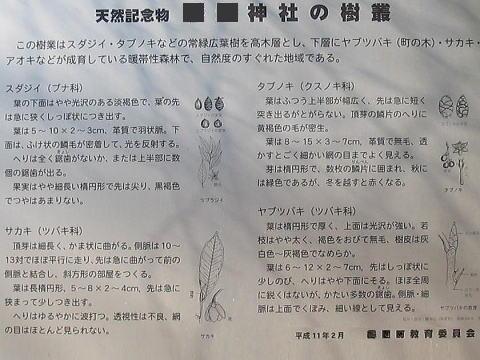 天然記念物 神社の樹叢
この樹叢はスダジイ・タブノキなどの常緑広葉樹を高木層とし、下層にヤブツバキ（町の木）・サカキ・
アオキなどが成育している暖帯性森林で、自然度のすぐれた地域である。
スダジイ（ブナ科）
葉の下面はやや光沢のある淡褐色で、葉の先
は急に狭くしっぽ状につき出す。
葉は5～10×2～3cm、革質で羽状脈。下
面は、ふけ状の鱗毛が密着して、光を反射する。
へりは全く鋸歯がないか、または上半部に数
個の鋸歯が出る。
果実はやや細長い楕円形で先は尖り、黒褐色
でつやはあまりない。
サカキ（ツバキ科）
頂芽は細長く、かま状に曲がる。側脈は10～
13対でほぼ平行に走り、先は急に曲がって前の
側脈と結合し、斜方形の部屋をつくる。
葉は長楕円形、5～8×2～4cm、先は急に
狭まって少しつき出す。
へりはゆるやかに波打つ。透視性は不良、網
の目はほとんど見られない。
サカキ
タブノキ（クスノキ科）
葉はふつう上半部が幅広く、先は急に短く
突き出るがとがらない。頂芽の鱗片のへりに
黄褐色の毛が密生。
葉は8～15×3～7cm、革質で無毛、透
かすとごく細かい網の目までよく見える。
芽は楕円形で、数枚の鱗片に囲まれ、秋に
は緑色であるが、冬を越すと赤くなる。
タブノキ
ヤブツバキ（ツバキ科）
葉は楕円形で厚く、上面は光沢が強い。若
枝はやや太く、褐色をおびて無毛、樹皮は灰
白色～灰褐色でなめらか。
葉は6～12×2～7cm、先はしっぽ状に
少しのび、へりはやや下面にそる。ほぼ全周
に鋭くはないが、かたい多数の鋸歯。側脈・細
脈は上面でくぼみ、細い線として見える。
平成11年2月 教育委員会